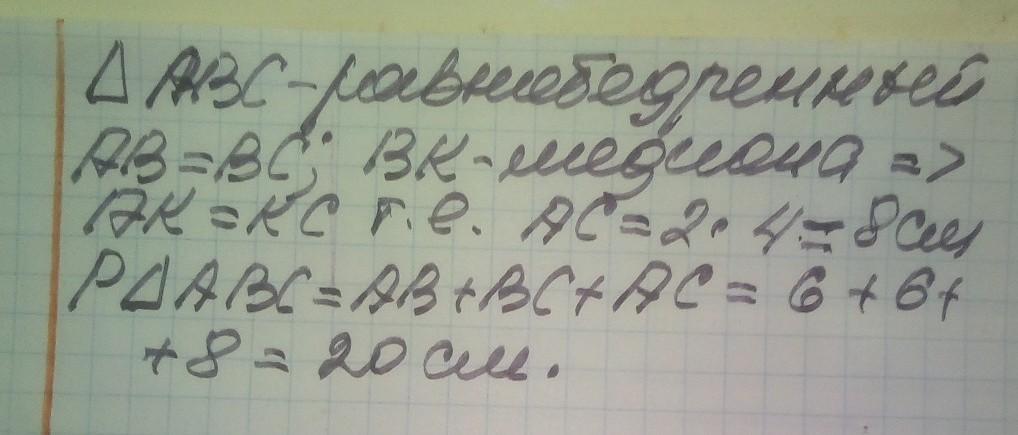 Δ ABC - равнобедренный
AB = BC; BK - медиана =>
AK = KC т.е. AC = 2 · 4 = 8 см
PΔABC = AB + BC + AC = 6 + 6 +
+ 8 = 20 см.